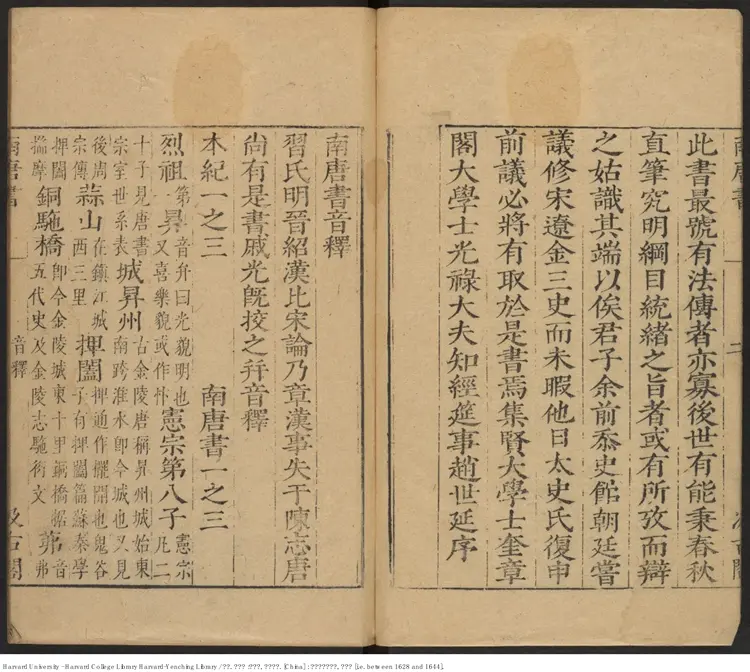 此書最號有法傳者亦寡後世有能秉春秋
直筆究明綱目統緒之旨者或有所攷而辯
之姑識其端以俟君子余前忝史館朝廷嘗
議修宋遼金三史而未暇他日太史氏復申
前議必將有取於是書焉集賢大學士奎章
閣大學士光祿大夫知經筵事趙世延序
南唐書音釋
習氏明晉紹漢比宋論乃章漢事失于陳志唐
尚有是書戚光旣挍之幷音釋
本紀一之三 南唐書一之三
烈祖 第一 昪 音弁曰光貌明也又喜樂貌或作忭 憲宗第八子 憲宗凡二
十子見唐書宗室世系表 城昇州 古金陵唐稱昇州城始東南跨淮水卽今城也又見
後周宗傳 蒜山 在鎮江城西三里 捭闔 捭通作擺開也鬼谷子有捭闔篇蘇秦學
捭闔揣摩 銅駞橋 卽今金陵城東十里銅橋據五代史及金陵志駞衍文 茀 音弗
音釋
Harvard University - Harvard College Library Harvard-Yenching Library / ??. ??? :???, ????. [China] : ???????, ??? [i.e. between 1628 and 1644].